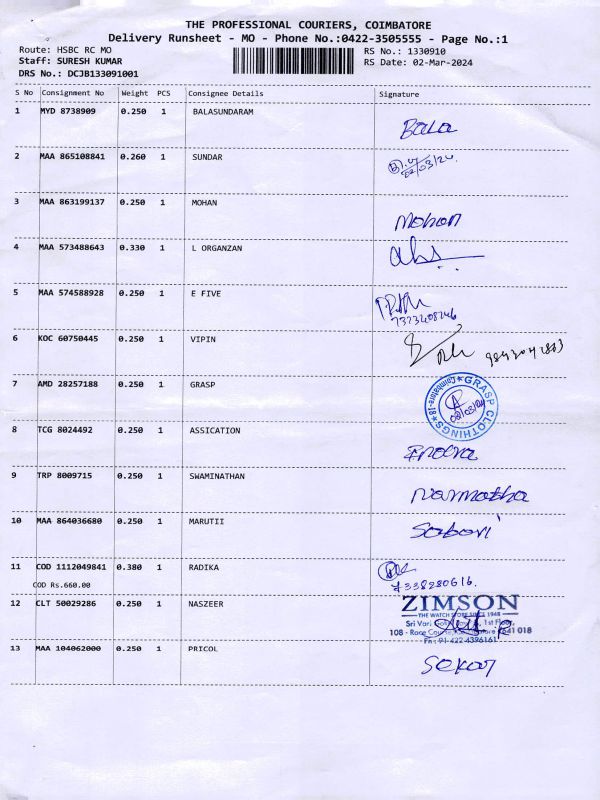 THE PROFESSIONAL COURIERS, COIMBATORE
Delivery Runsheet - MO - Phone No.:0422-3505555 - Page No.:1
Route: HSBC RC MO
RS No.: 1330910
Staff: SURESH KUMAR
RS Date: 02-Mar-2024
DRS No.: DCJB133091001
S No Consignment No Weight PCS Consignee Details Signature
1 MYD 8738909 0.250 1 BALASUNDARAM
Bala
2 MAA 865108841 0.260 1 SUNDAR
02/03/24.
3 MAA 863199137 0.250 1 MOHAN
Mohan
4 MAA 573488643 0.330 1 L ORGANZAN
5 MAA 574588928 0.250 1 E FIVE
6 KOC 60750445 0.250 1 VIPIN
7 AMD 28257188 0.250 1 GRASP
GRASP CLOTHINGS
Coimbatore-18
8 TCG 8024492 0.250 1 ASSICATION
Indira
9 TRP 8009715 0.250 1 SWAMINATHAN
Narmatha
10 MAA 864036680 0.250 1 MARUTII
Sabari
11 COD 1112049841 0.380 1 RADIKA
COD Rs.660.00
7338280616.
12 CLT 50029286 0.250 1 NASZEER
ZIMSON
THE WATCH STORE SINCE 1948
Sri Vari 1st Floor,
108 - Race 641 018
Ph : 91-422 4396161
13 MAA 104062000 0.250 1 PRICOL
Sekar